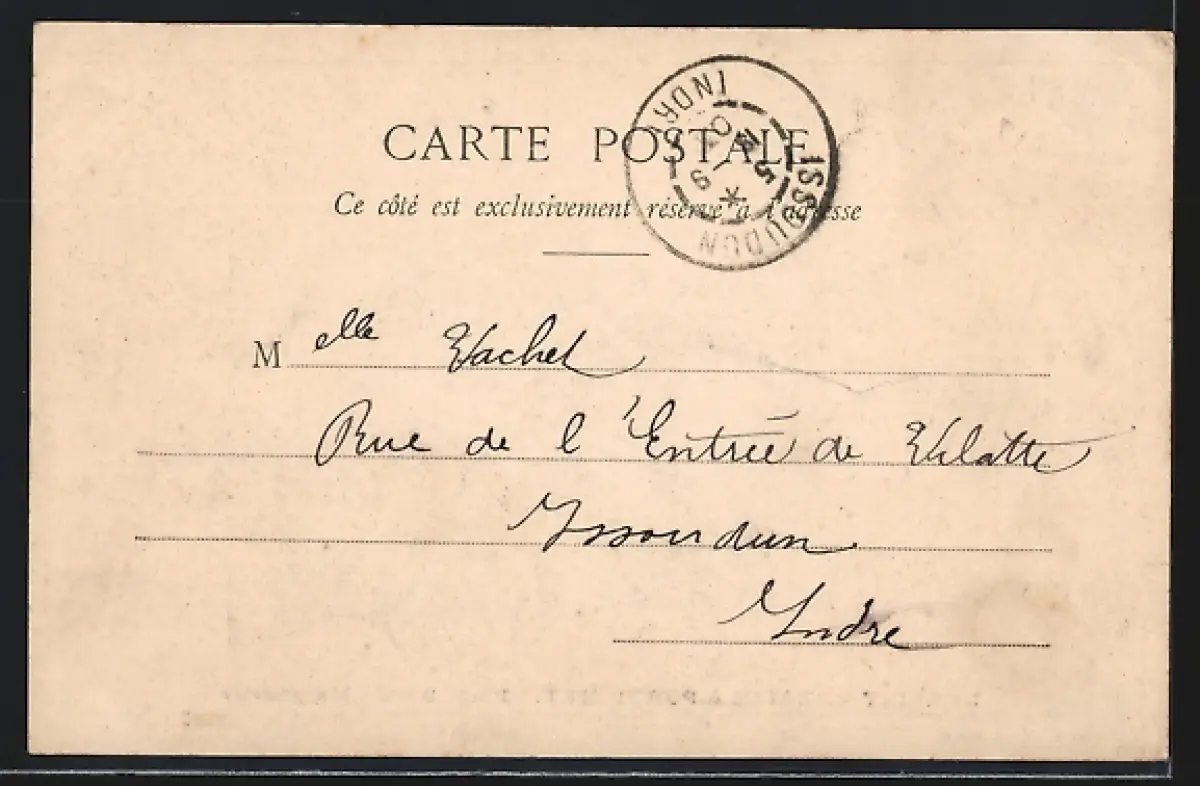 CARTE POSTALE
Ce côté est exclusivement réservé à l'adresse
ISSOUDUN
INDRE
Melle Vachet
Rue de l'Entrée de Vilatte
Issoudun
Indre